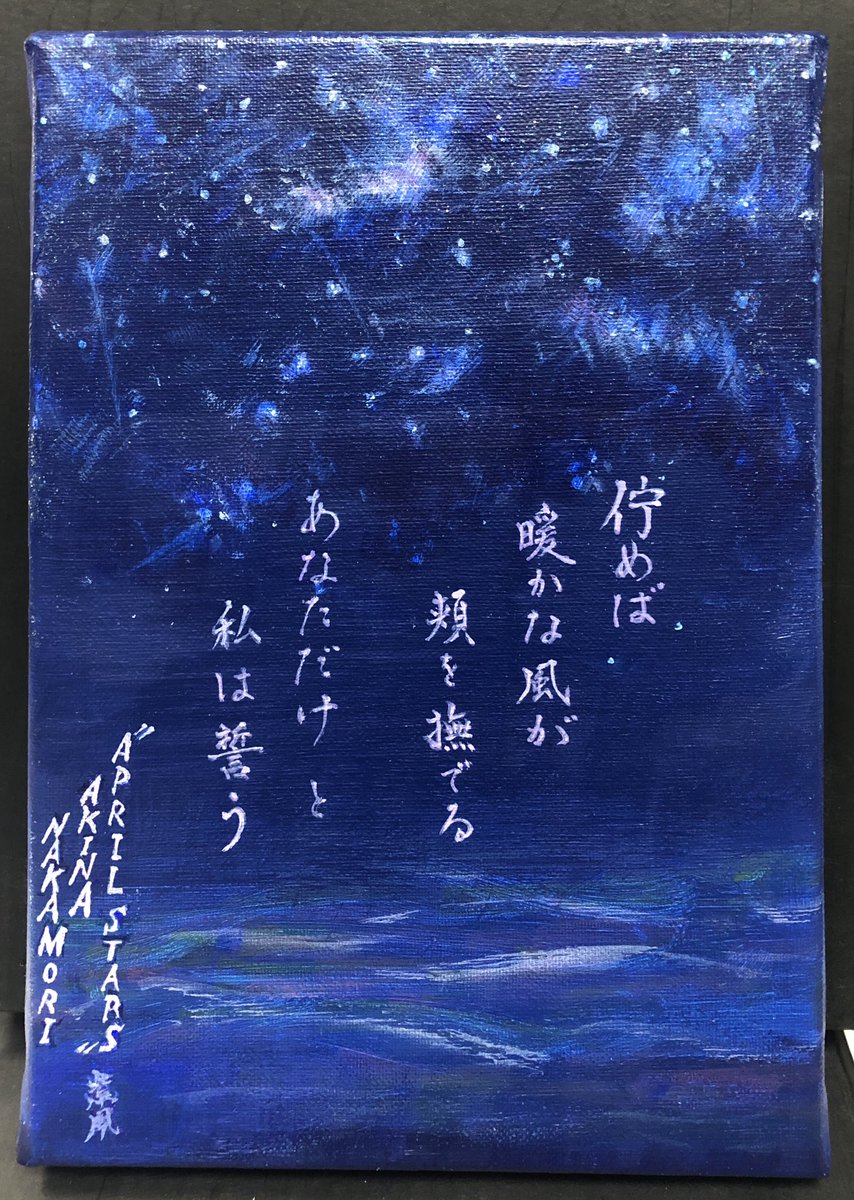 佇めば
暖かな風が
頬を撫でる
あなただけと
私は誓う
"APRIL STARS"
AKINA
NAKAMORI